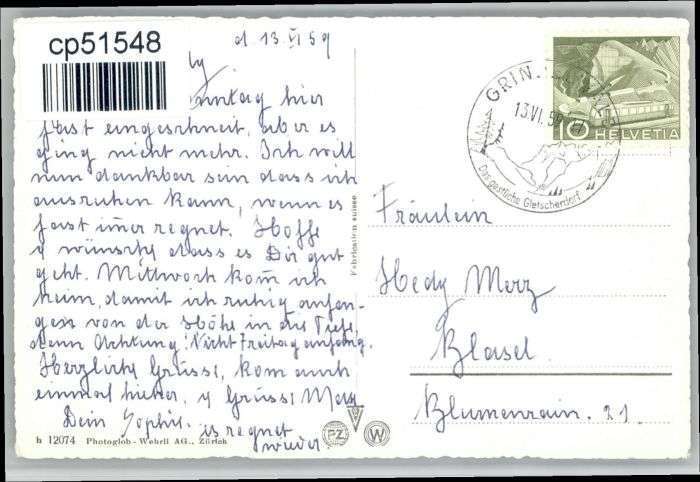 cp51548
d. 13.VI 59
nntag hier
fast eingeschneit, aber es
ging nicht mehr. Ich will
nun dankbar sein dass ich
ausruhen kann, wenn es
fast im̄er regnet. Hoffe
y wünsche dass es Dir gut
geht. Mittwoch kom̄ ich
heim, damit ich ruhig anfan-
gen von der Höhe in die Tiefe,
denn Achtung! Nicht Freitag anfang.
Herzlich Grüsse, kom auch
einmal hieher, y Grüssi
Dein Sophie. es regnet
wieder.
h 12074 Photoglob-Wehrli AG., Zürich
Fabrication suisse
PZ
W
GRIN
13.VI.59
Das gastliche Gletscherdorf
10 HELVETIA
Fräulein
Hedy Merz
Basel
Blumenrain. 21.